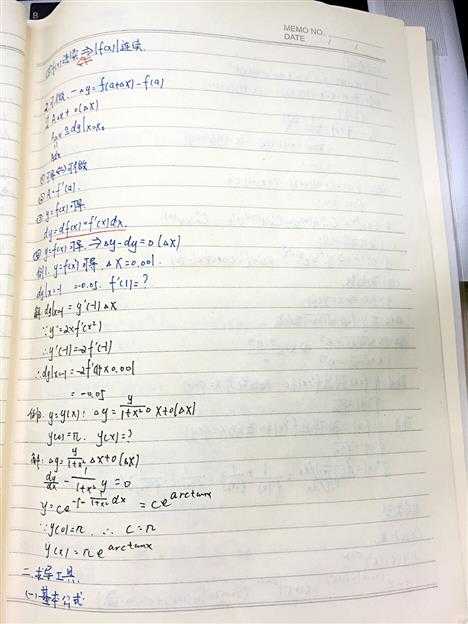 MEMO NO.
DATE / /
①f(x)连续⇒|f(x)|连续.
2.可微. - Δy=f(a+Δx)-f(a)
= AΔx+o(Δx)
AΔx≜dy|x=x₀
Adx
①可导⇔可微
②A=f'(a).
③y=f(x)可导.
dy=df(x)=f'(x)dx.
④y=f(x)可导.⇒Δy-dy=o(Δx)
例1. y=f(x²)可导. ΔX=0.001.
dy|x=-1 =-0.05. f'(1)=?
解: dy|x=-1=y'(-1)Δx
∵y'=2xf'(x²)
∴y'(-1)=-2f'(1)
∴dy|x=-1=-2f'(1)×0.001
=-0.05
y=y(x): Δy=y/(1+x²)Δx+o(Δx)
y(0)=π. y(x)=?
解: Δy=y/(1+x²)Δx+o(Δx)
dy/dx-1/(1+x²)y=0
y=ce^-∫-1/(1+x²)dx =ce^arctanx
∵y(0)=π. ∴ C=π
y(x)=πe^arctanx
二.求导工具
(一)基本公式.